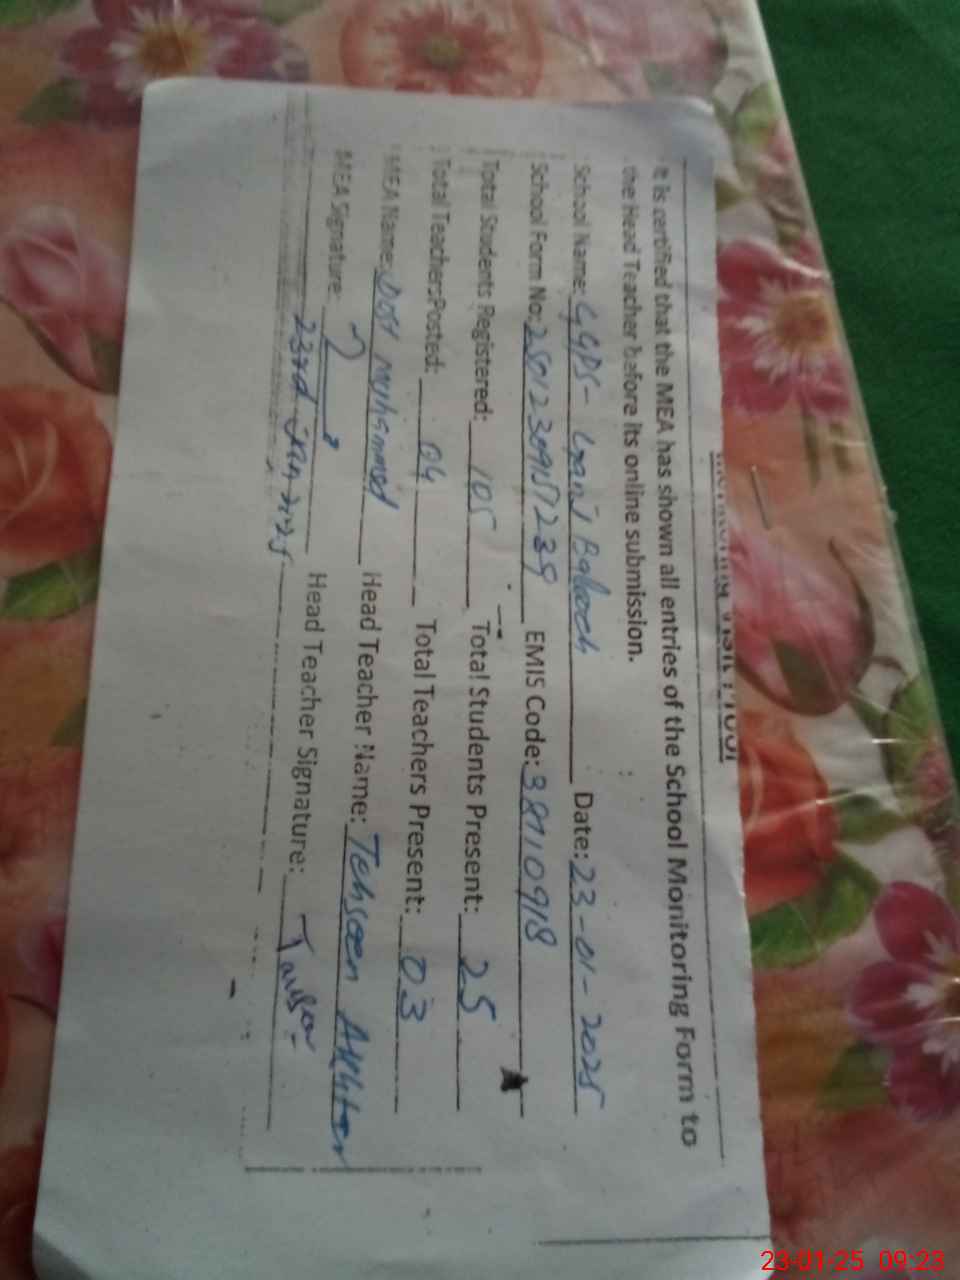 Monitoring Visit Proof
It is certified that the MEA has shown all entries of the School Monitoring Form to
the Head Teacher before its online submission.
School Name: GGPS- Balooch Date: 23-01-2025
School Form No: EMIS Code: 38710918
Total Students Registered: 105 Total Students Present: 25
Total Teachers Posted: 04 Total Teachers Present: 03
MEA Name: Dost Muhammad Head Teacher Name: Tehseen Akhter
MEA Signature: Head Teacher Signature:
23rd Jan 2025
23-01-25 09:23